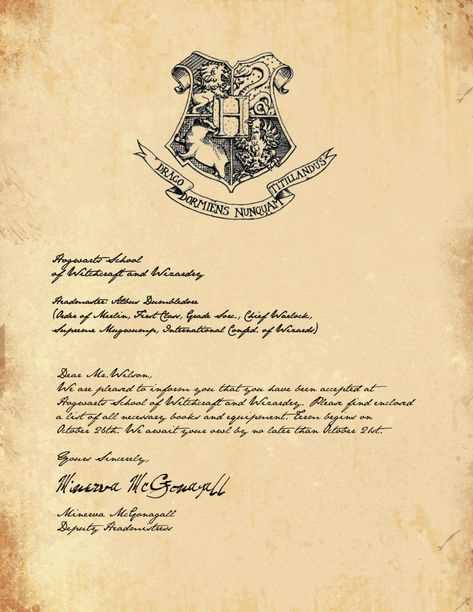 H
DRAGO DORMIENS NUNQUAM TITILLANDUS
Hogwarts School
of Witchcraft and Wizardry
Headmaster Albus Dumbledore
(Order of Merlin, First Class, Grade Sorc., Chief Warlock,
Supreme Mugwump, International Confed. of Wizards)
Dear Mr. Wilson,
We are pleased to inform you that you have been accepted at
Hogwarts School of Witchcraft and Wizardry. Please find inclosed
a list of all necessary books and equipment. Term begins on
October 26th. We await your owl by no later than October 21st.
Yours Sincerely,
Minerva McGonagall
Minerva McGonagall
Deputy Headmistress